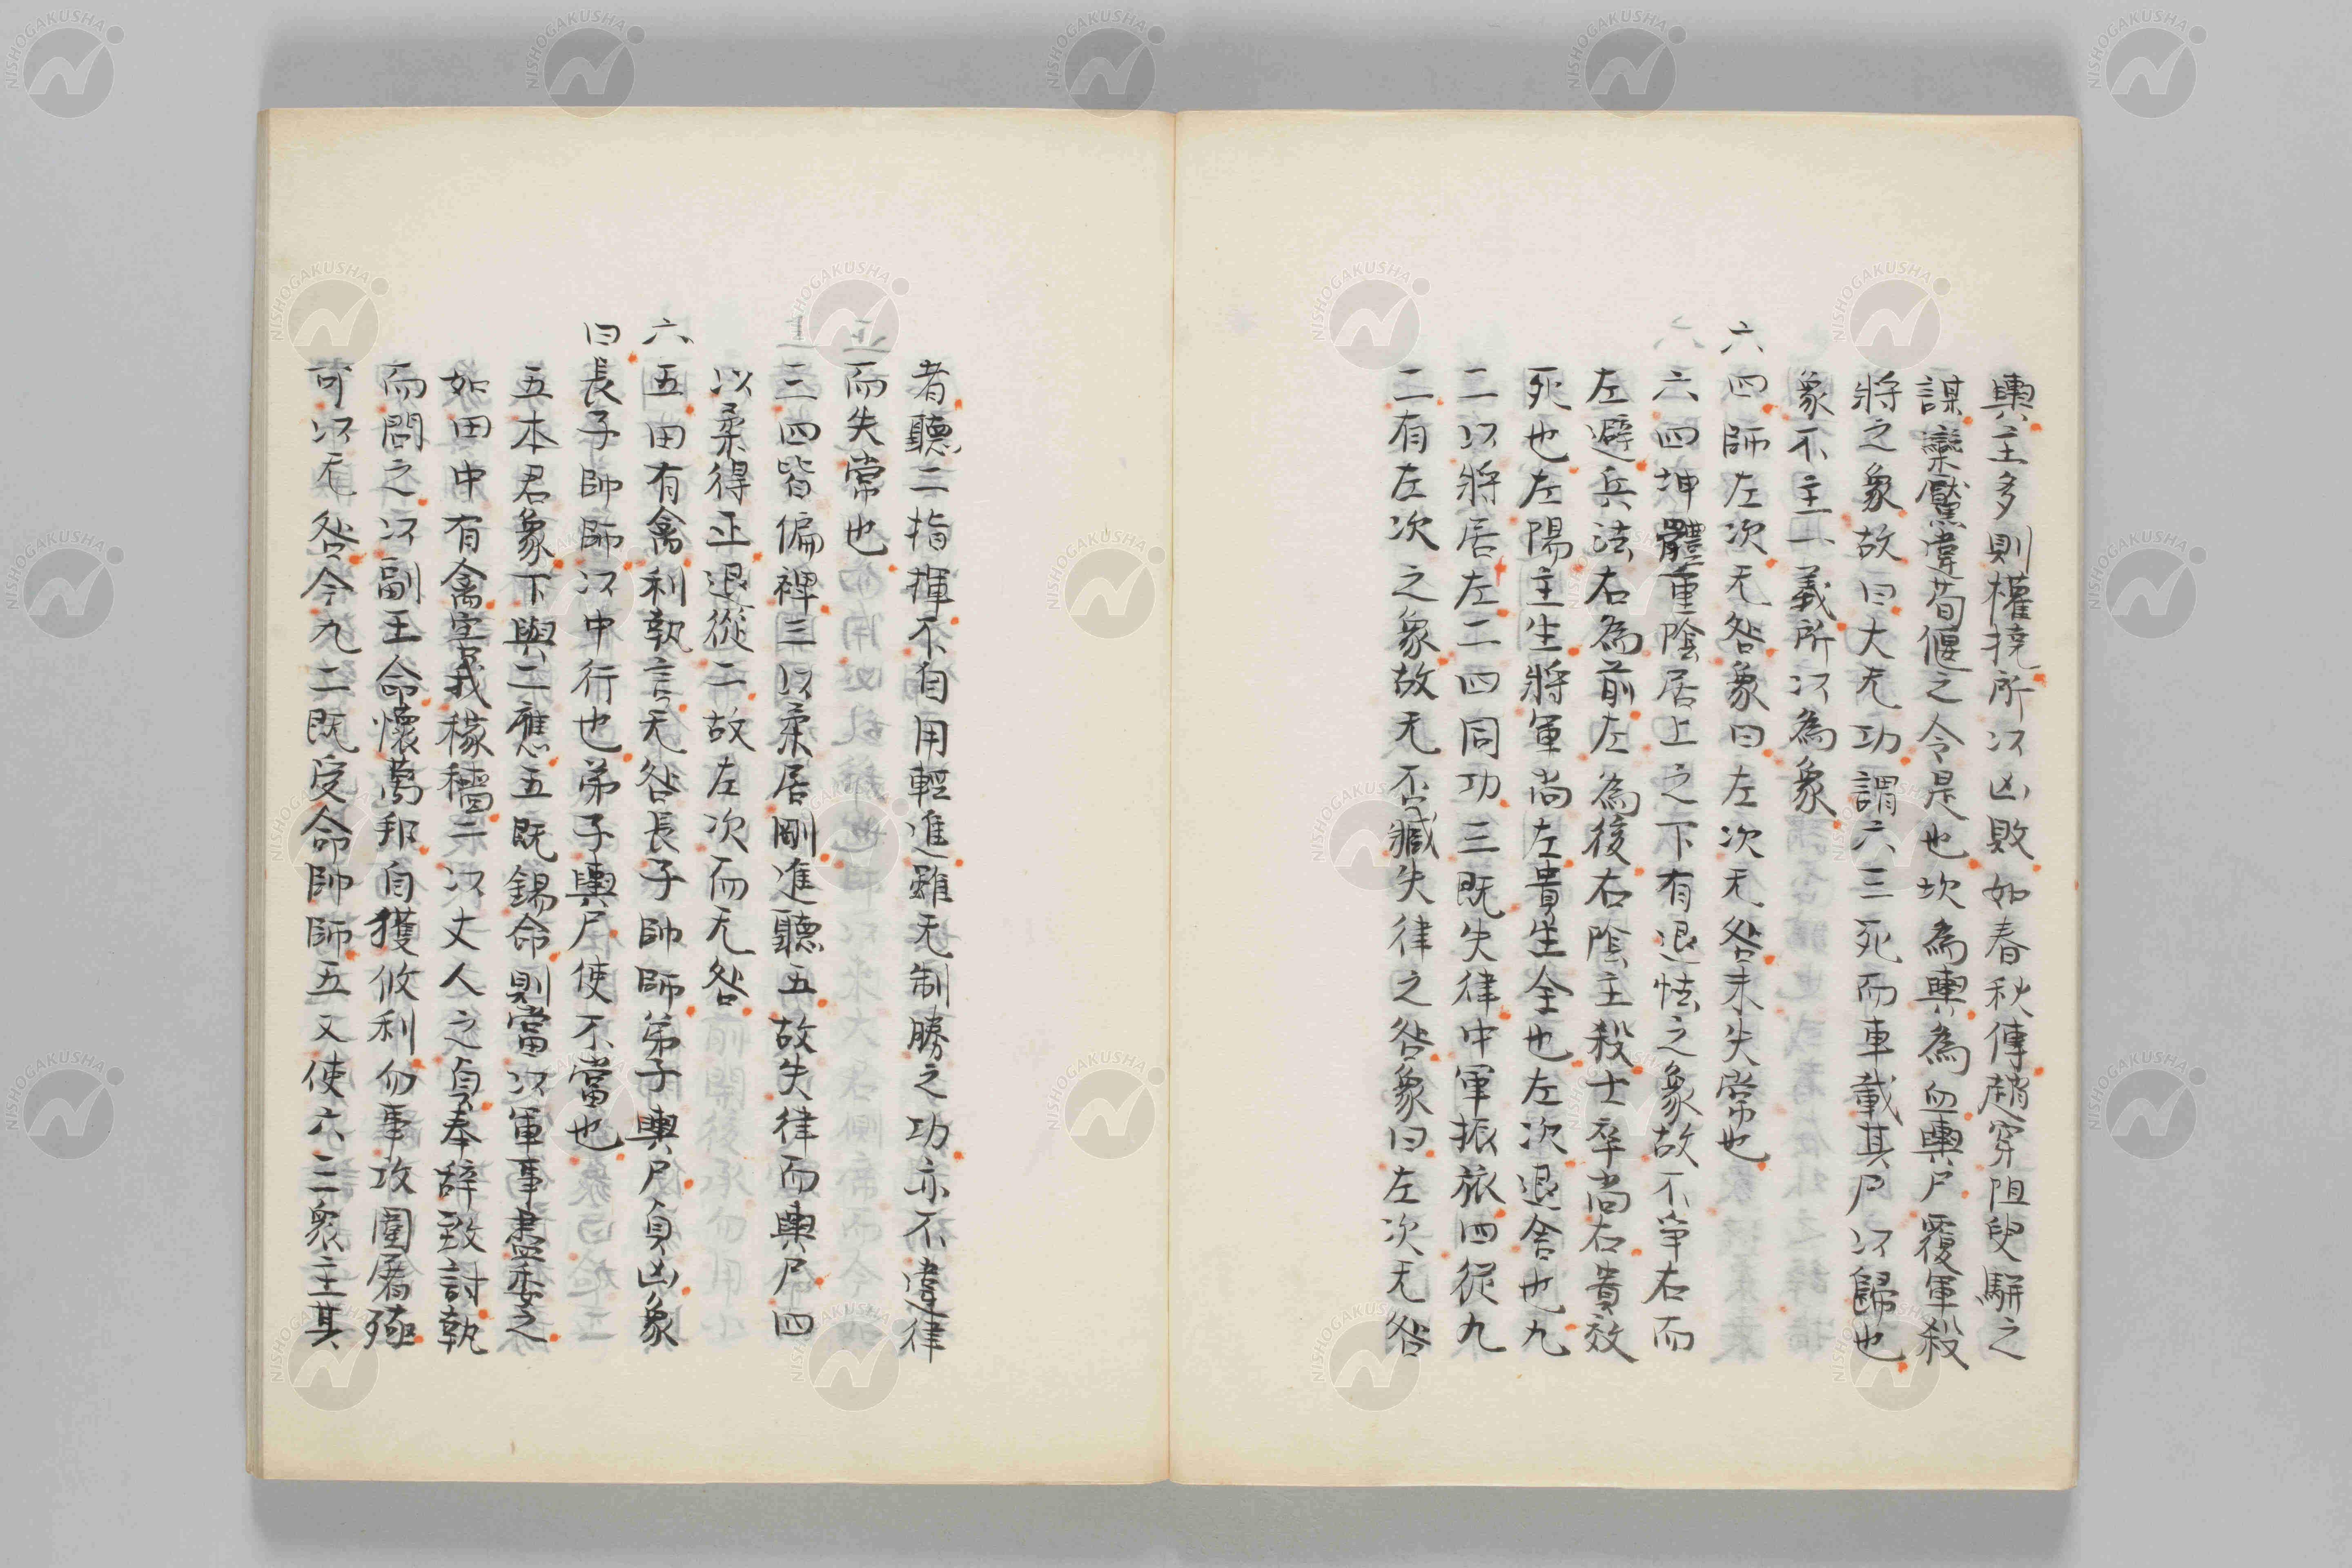 輿主多則權撓所以凶敗如春秋傳趙穿阻臾駢之
謀欒黶違荀偃之令是也坎為輿為血輿尸覆軍殺
將之象故曰大无功謂六三死而車載其尸以歸也
象不主一義所以為象
六四師左次无咎象曰左次无咎未失常也
六四坤體重陰居上之下有退怯之象故不爭右而
左避兵法右為前左為後右陰主殺士卒尚右貴效
死也左陽主生將軍尚左貴生全也左次退舍也九
二以將居左二四同功三既失律中軍振旅四從九
二有左次之象故无否臧失律之咎象曰左次无咎
者聽二指揮不自用輕進雖无制勝之功亦不違律
而失常也
三四皆偏裨三以柔居剛進聽五故失律而輿尸四
以柔得正退從二故左次而无咎
六五田有禽利執言无咎長子帥師弟子輿尸貞凶象
曰長子帥師以中行也弟子輿尸使不當也
五本君象下與二應五既錫命則當以軍事盡委之
如田中有禽害我稼穡二以丈人之貞奉辭致討執
而問之以副王命懷萬邦自獲攸利勿事攻圍屠殛
可以无咎今九二既受命帥師五又使六三衆主其